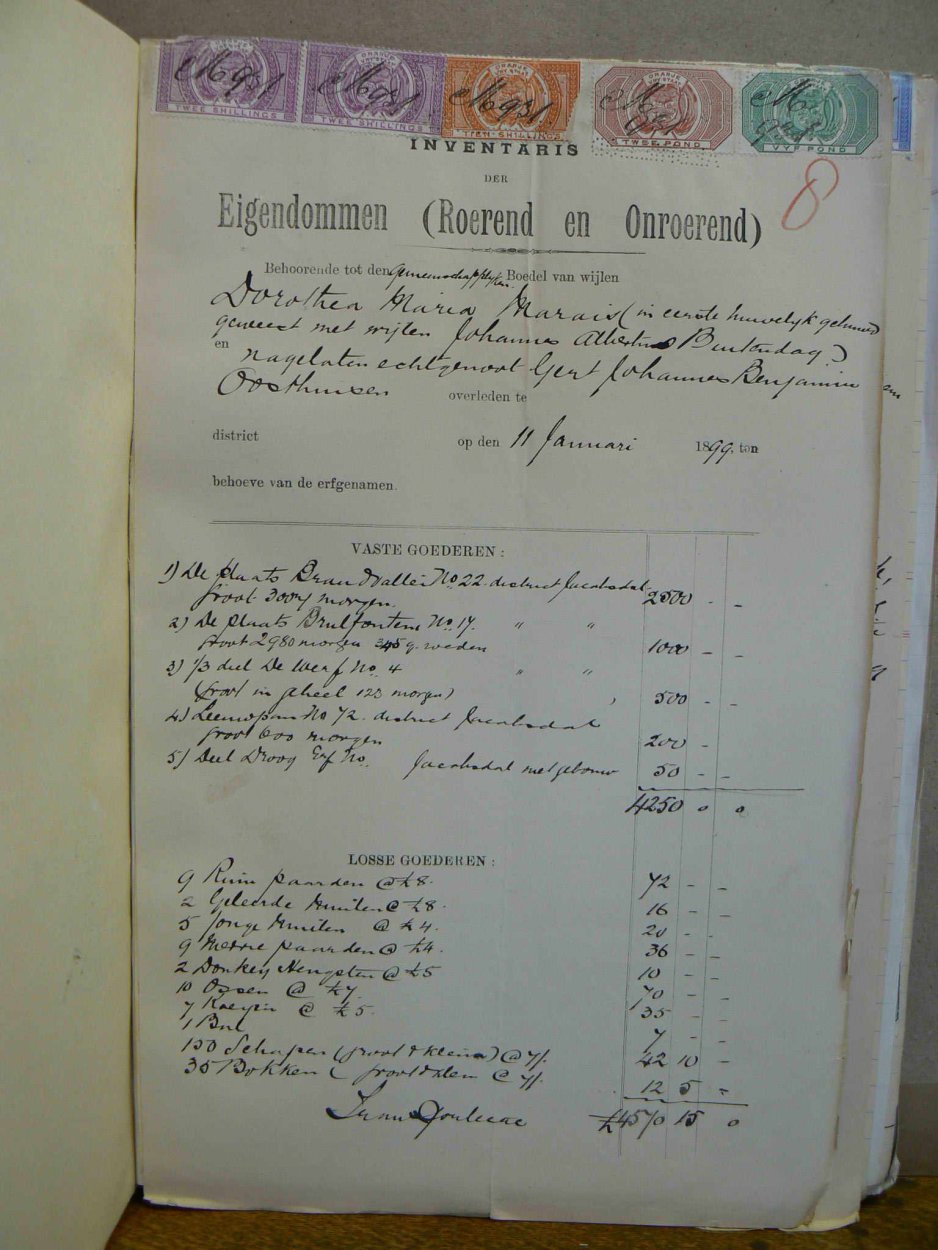 ORANJE VRY STAAT TWEE SHILLINGS
ORANJE VRY STAAT TWEE SHILLINGS
ORANJE VRY STAAT TIEN SHILLINGS
ORANJE VRY STAAT TWEE POND
ORANJE VRY STAAT VYF POND
INVENTARIS
8
DER
Eigendommen (Roerend en Onroerend)
Behoorende tot den gemeenschappelyken Boedel van wijlen
Dorothea Maria Marais (in eerste huwelijk gehuwd
geweest met wijlen Johannes Albertus Buitendag)
en nagelaten echtgenoot Gert Johannes Benjamin
Oosthuisen overleden te
district op den 11 Januari 1899. ten
behoeve van de erfgenamen.
VASTE GOEDEREN:
1) De plaats Brandvallei No 22. district Jacobsdal
groot 3007 morgen. 2500 - -
2) De plaats Brulfontein No 17. " "
groot 2980 morgen 345 q. roeden 1000 - -
3) 1/3 deel De Werf No. 4 " "
(groot in geheel 123 morgen) 500 - -
4) Leeuwpan No 72. district Jacobsdal
groot 600 morgen 200 -
5) Deel Droog Erf No. Jacobsdal met gebouw 50 - -
4250 0 0
LOSSE GOEDEREN:
9 Ruin paarden @ £8. 72 - -
2 Geleerde Muilen @ £8. 16 - -
5 Jonge Muilen @ £4. 20 - -
9 Merrie paarden @ £4. 36 - -
2 Donkey Hengsten @ £5 10 - -
10 Ossen @ £7 70 - -
7 Koeyen @ £5. 35 - -
1 Bul 7 - -
150 Schapen (groot & klein) @ 7/. 42 10 -
35 Bokken (groot & klein @ 7/. 12 5 -
£4570 15 0